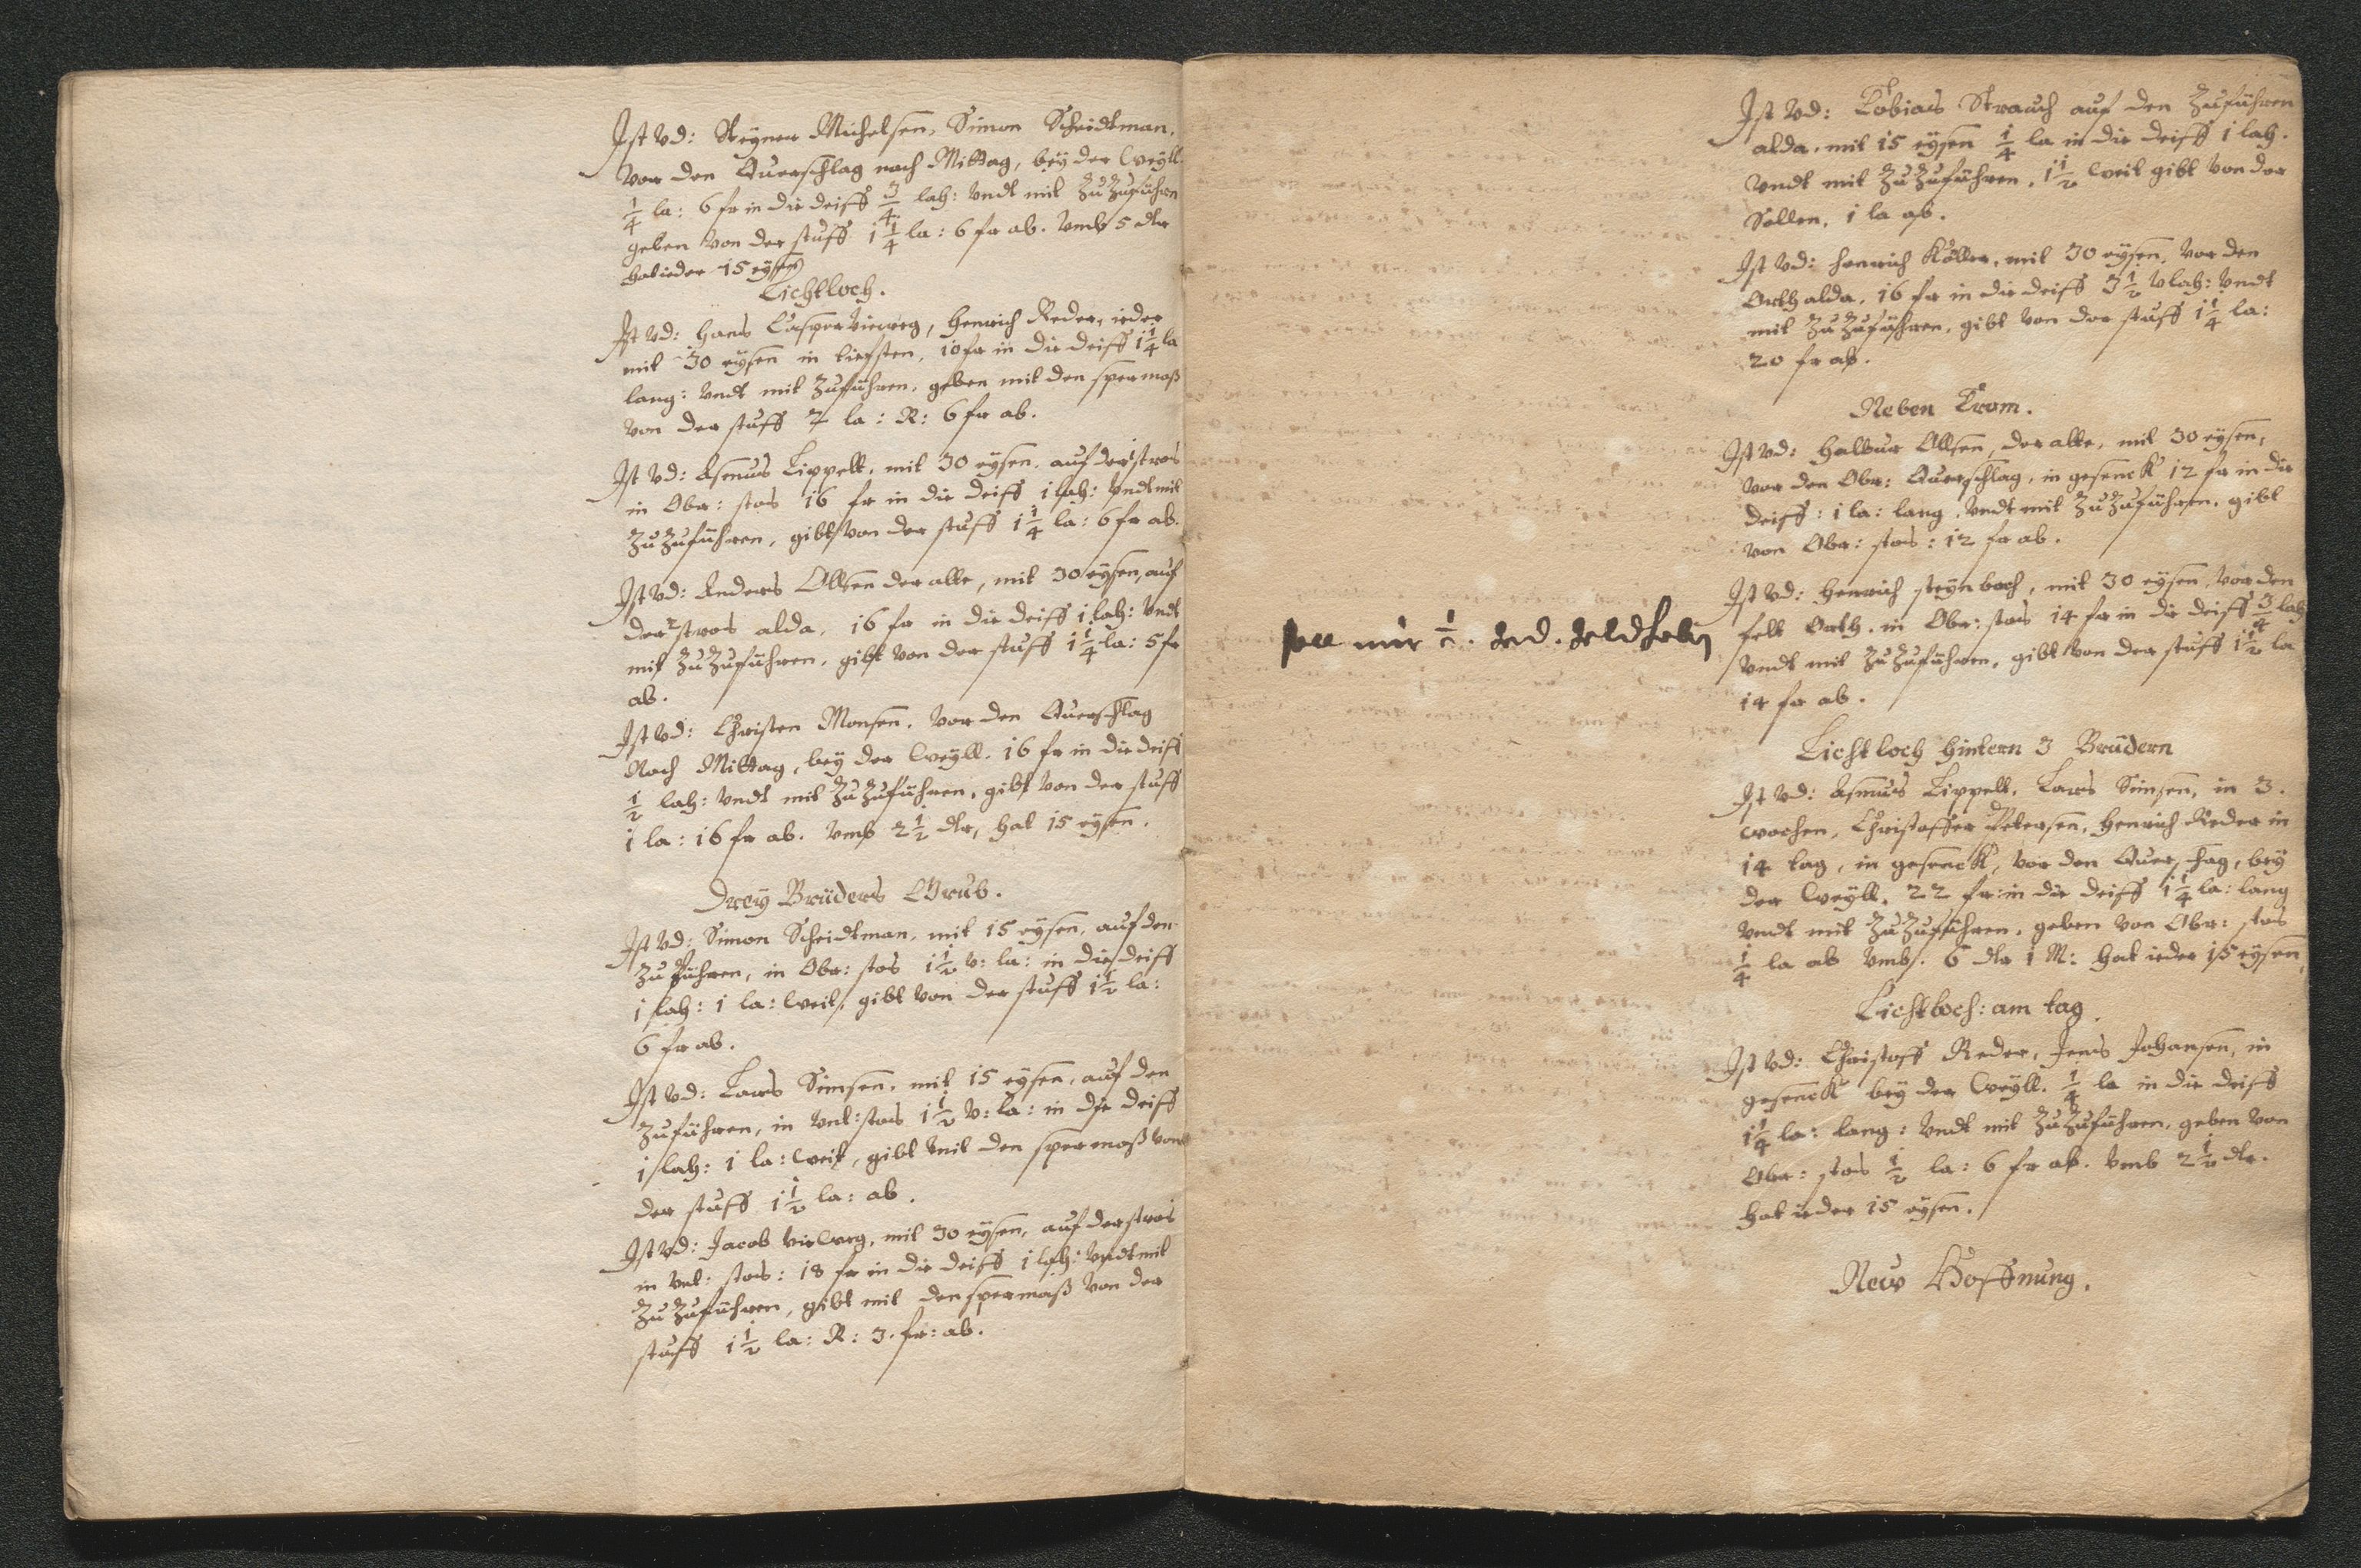 Ist vd: Steyner Michelsen, Simon Scheidtman,
vor den Querschlag nach Mittag, bey der weyll.
1/4 la: 6 fr in die deiff 3/4 lah: vndt mit Zu Zuführn
geben von der stuff 1 1/4 la: 6 fr ab. vmb 5 dlr
hat ieder 15 eysen
Lichtloch.
Ist vd: Hans Casper vieweg, Henrich Reder, ieder
mit 30 eysen in tiefsten, 10 fr in die deiff 1 1/4 la
lang: vndt mit Zuführen, geben mit den spermaß
von der stuff 7 la: R: 6 fr ab.
Ist vd: Asmus Lippelt, mit 30 eysen, auf der 1 stros
in Obr: stos 16 fr in die deiff 1 lah: vndt mit
Zu Zuführen, gibt von der stuff 1 1/4 la: 6 fr ab.
Ist vd: Anders Ollsen der alte, mit 30 eysen, auf
der 2 stros alda, 16 fr in die deiff 1 lah: vndt
mit Zu Zuführen, gibt von der stuff 1 1/4 la: 5 fr
ab.
Ist vd: Christen Monsen, vor den Querschlag
Nach Mittag, bey der weyll. 16 fr in die deiff
1/2 lah: vndt mit Zu Zuführen, gibt von der stuff
1 la: 16 fr ab. vmb 2 1/2 dlr, hat 15 eysen.
Drey Brüders Grub.
Ist vd: Simon Scheidtman, mit 15 eysen, auf den
Zu führen, in Obr: stos 1 1/2 v: la: in die deiff
1 lah: 1 la: weit, gibt von der stuff 1 1/2 la:
6 fr ab.
Ist vd: Lars Simsen, mit 15 eysen, auf den
Zuführen, in vnt: stos 1 1/2 v: la: in die deiff
1 lah: 1 la: weit, gibt mit den spermaß von
der stuff 1 1/2 la: ab.
Ist vd: Jacob vieweg, mit 30 eysen, auf der stros
in vnt: stos: 18 fr in die deiff 1 lah: vndt mit
Zu Zuführen, gibt mit den spermaß von der
stuff 1 1/2 la: R: 3. fr: ab.
Ist vd: Tobias Strauch auf den Zuführen
alda, mit 15 eysen 1/4 la in die deiff 1 lah.
vndt mit Zu Zuführen, 1 1/2 weit gibt von der
Sollen, 1 la ab.
Ist vd: Henrich Köller, mit 30 eysen, vor den
Orth alda, 16 fr in die deiff 3 1/2 v lah: vndt
mit Zu Zuführen, gibt von der stuff 1 1/4 la:
20 fr ab.
Neben Trom.
Ist vd: Halvur Ollsen, der alte, mit 30 eysen,
vor den Obr: Querschlag, in gesenck 12 fr in die
deiff: 1 la: lang, vndt mit Zu Zuführen, gibt
von Obr: stos: 12 fr ab.
Ist vd: Henrich steynbach, mit 30 eysen, vor den
felt Orth, in Obr: stos 14 fr in die deiff 3/4 lah
vndt mit Zu Zuführen, gibt von der stuff 1 1/2 la
14 fr ab.
soll nur 1/2
Lichtloch hintern 3 Brüdern
Ist vd: Asmus Lippelt, Lars Simsen, in 3.
wochen, Christoffer Petersen, Henrich Reder in
14 tag, in gesenck, vor den Querschag, bey
der weyll. 22 fr: in die deiff 1 1/4 la: lang
vndt mit Zu Zuführen, geben von Obr: stos
1/4 la ab vmb. 6 dlr 1 M: hat ieder 15 eysen,
Lichtloch: am tag.
Ist vd: Christoff Reder, Jens Johansen, in
gesenck bey der weyll. 1/4 la in die deiff
1 1/4 la: lang: vndt mit Zu Zuführen, geben von
Obr: stos 1/2 la: 6 fr ab. vmb 2 1/2 dlr.
hat ieder 15 eysen.
Neve Hoffnung.